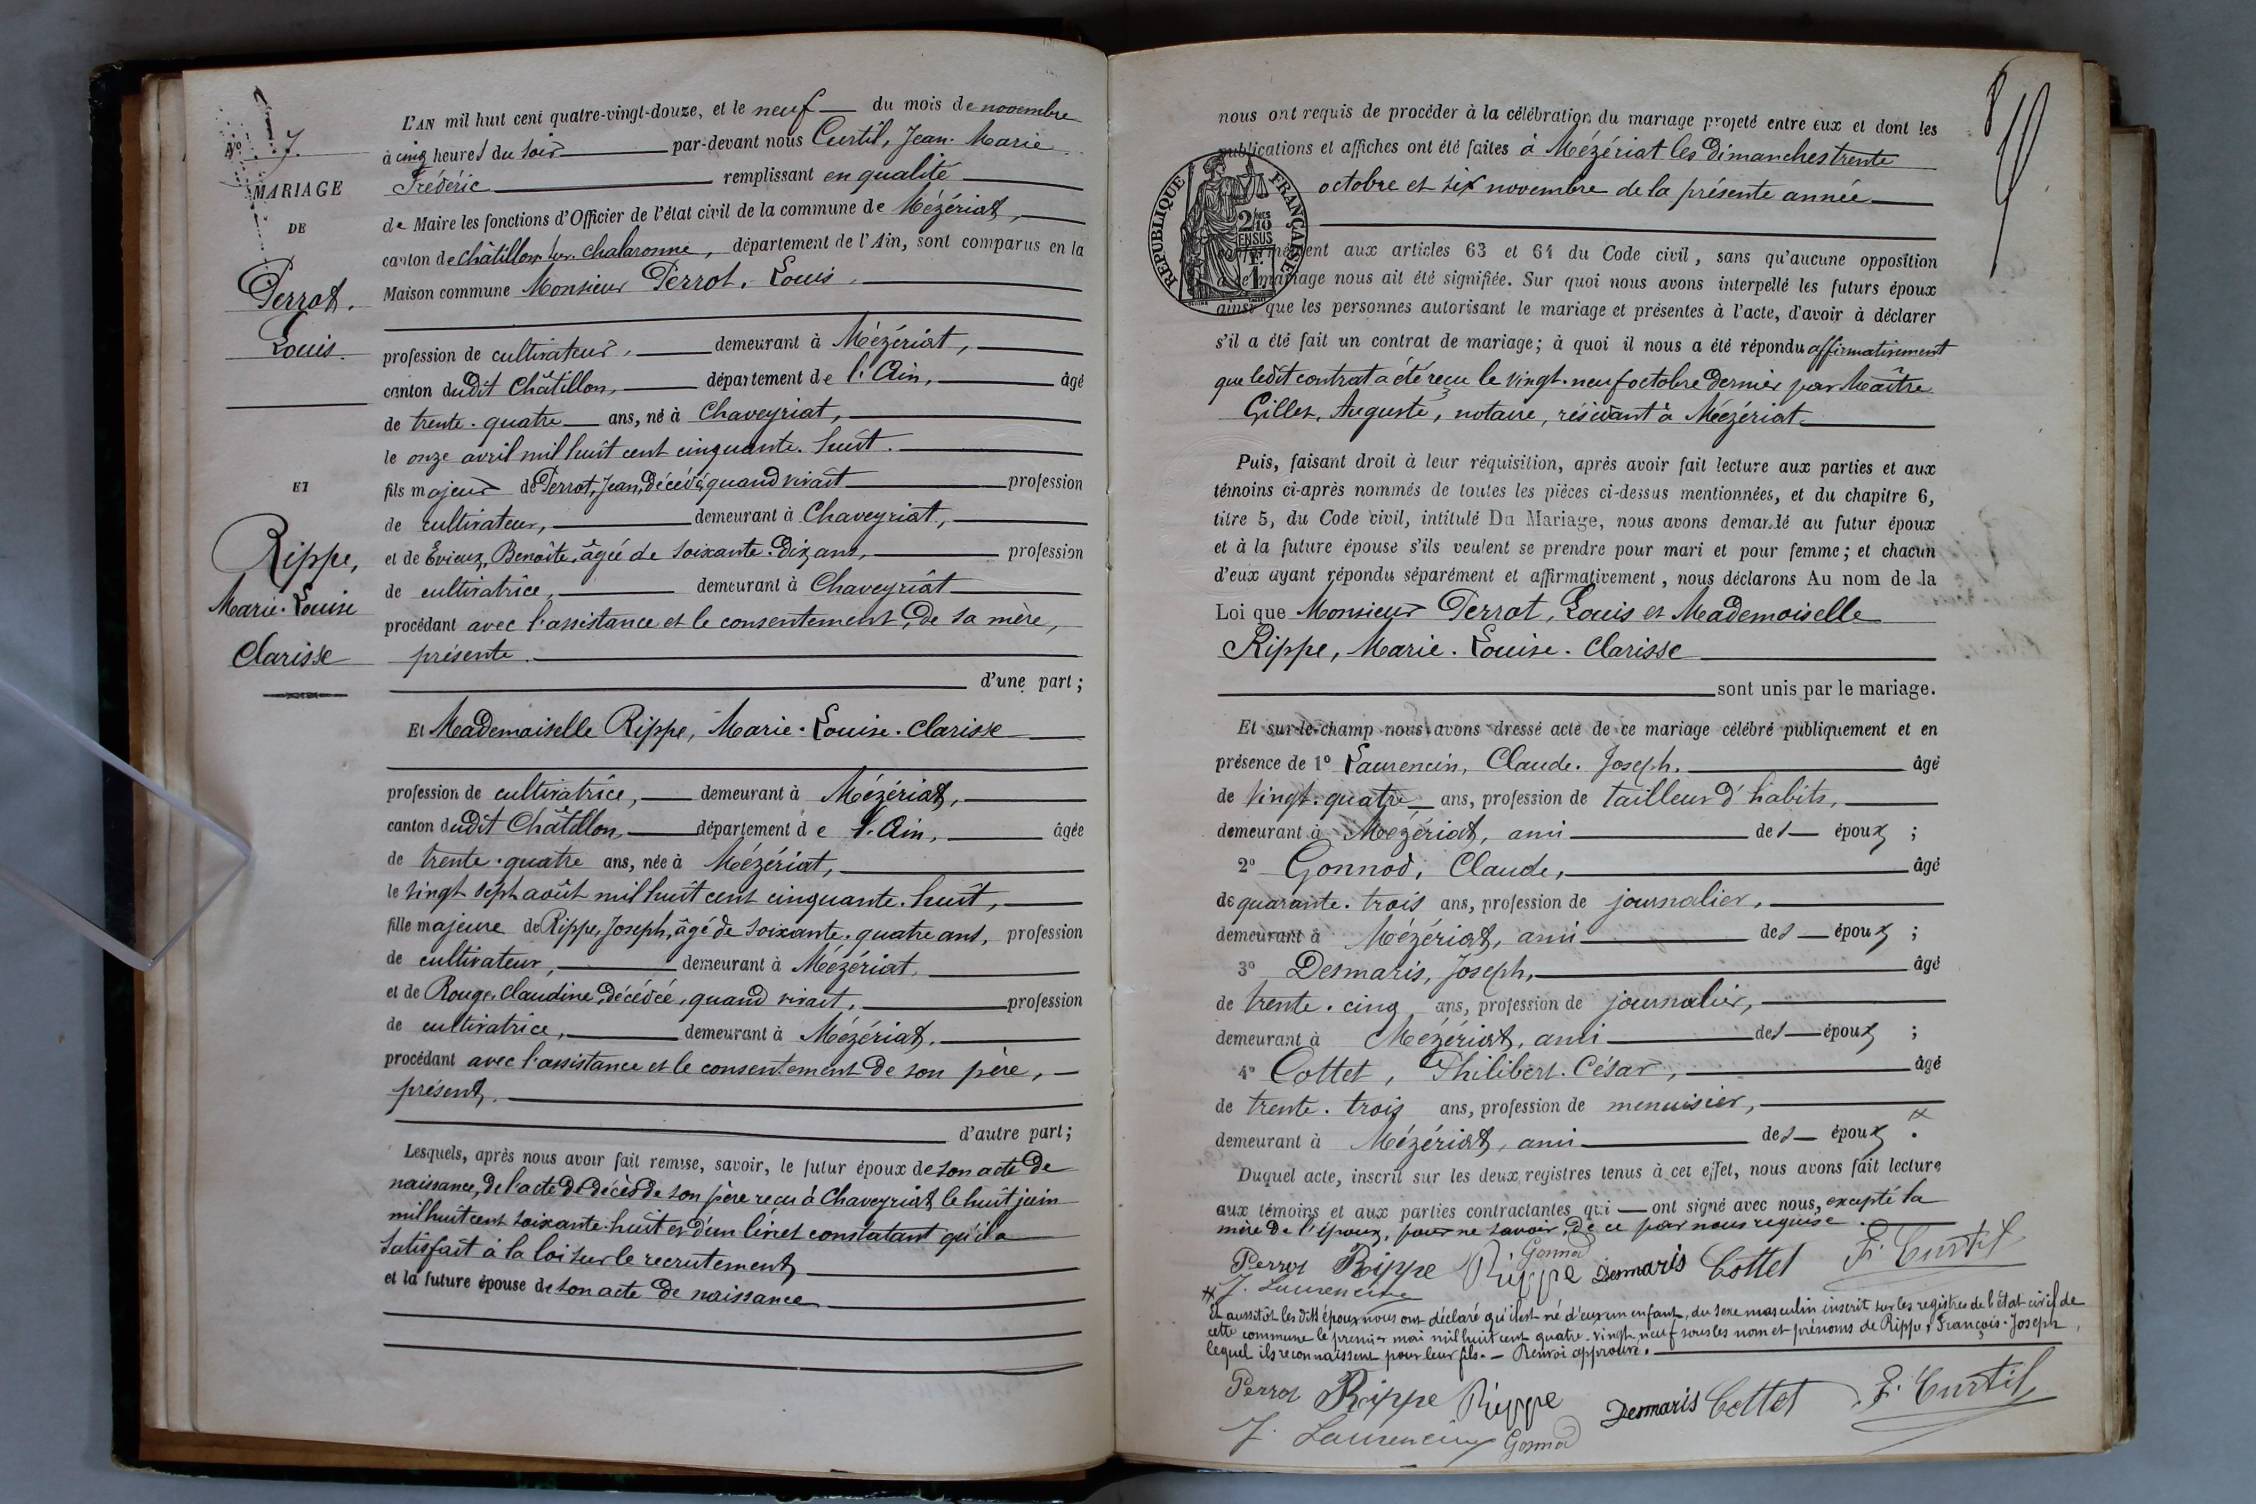 N° 7.
MARIAGE
DE
Perrot,
Louis.
ET
Rippe,
Marie-Louise
Clarisse
L'AN mil huit cent quatre-vingt-douze, et le neuf du mois de novembre
à cinq heures du soir par-devant nous Curtil, Jean-Marie
Frédéric remplissant en qualité
de Maire les fonctions d'Officier de l'état civil de la commune de Mézériat,
canton de Châtillon-sur-Chalaronne, département de l'Ain, sont comparus en la
Maison commune Monsieur Perrot, Louis,
profession de cultivateur, demeurant à Mézériat,
canton dudit Châtillon, département de l'Ain, âgé
de trente-quatre ans, né à Chaveyriat,
le onze avril mil huit cent cinquante-huit.
fils majeur de Perrot, Jean, décédé, quand vivait profession
de cultivateur, demeurant à Chaveyriat,
et de Evieux, Benoîte, âgée de soixante-dix ans, profession
de cultivatrice, demeurant à Chaveyriat
procédant avec l'assistance et le consentement, de sa mère,
présente.
d'une part;
Et Mademoiselle Rippe, Marie-Louise-Clarisse
profession de cultivatrice, demeurant à Mézériat,
canton dudit Châtillon, département de l'Ain, âgée
de trente-quatre ans, née à Mézériat,
le vingt sept août mil huit cent cinquante-huit,
fille majeure de Rippe, Joseph, âgé de soixante-quatre ans, profession
de cultivateur, demeurant à Mézériat,
et de Rouge, Claudine, décédée, quand vivait, profession
de cultivatrice, demeurant à Mézériat.
procédant avec l'assistance et le consentement de son père,
présent.
d'autre part;
Lesquels, après nous avoir fait remise, savoir, le futur époux de son acte de
naissance, de l'acte de décès de son père reçu à Chaveyriat le huit juin
mil huit cent soixante-huit et d'un livret constatant qu'il a
satisfait à la loi sur le recrutement
et la future épouse de son acte de naissance
nous ont requis de procéder à la célébration du mariage projeté entre eux et dont les
publications et affiches ont été faites à Mézériat les dimanches trente
octobre et six novembre de la présente année
RÉPUBLIQUE FRANÇAISE
conformément aux articles 63 et 64 du Code civil, sans qu'aucune opposition
à ce mariage nous ait été signifiée. Sur quoi nous avons interpellé les futurs époux
ainsi que les personnes autorisant le mariage et présentes à l'acte, d'avoir à déclarer
s'il a été fait un contrat de mariage; à quoi il nous a été répondu affirmativement
que ledit contrat a été reçu le vingt-neuf octobre dernier par Maître
Gillet, Auguste, notaire, résidant à Mézériat
Puis, faisant droit à leur réquisition, après avoir fait lecture aux parties et aux
témoins ci-après nommés de toutes les pièces ci-dessus mentionnées, et du chapitre 6,
titre 5, du Code civil, intitulé Du Mariage, nous avons demandé au futur époux
et à la future épouse s'ils veulent se prendre pour mari et pour femme; et chacun
d'eux ayant répondu séparément et affirmativement, nous déclarons Au nom de la
Loi que Monsieur Perrot, Louis et Mademoiselle
Rippe, Marie-Louise-Clarisse
sont unis par le mariage.
Et sur-le-champ nous avons dressé acte de ce mariage célébré publiquement et en
présence de 1° Laurencin, Claude-Joseph, âgé
de vingt-quatre ans, profession de tailleur d'habits,
demeurant à Mézériat, ami des époux;
2° Gonnod, Claude, âgé
de quarante-trois ans, profession de journalier,
demeurant à Mézériat, ami des époux;
3° Desmaris, Joseph, âgé
de trente-cinq ans, profession de journalier,
demeurant à Mézériat, ami des époux;
4° Cottet, Philibert-César, âgé
de trente-trois ans, profession de menuisier,
demeurant à Mézériat, ami des époux.
Duquel acte, inscrit sur les deux registres tenus à cet effet, nous avons fait lecture
aux témoins et aux parties contractantes qui ont signé avec nous, excepté la
mère de l'époux, pour ne savoir, de ce par nous requise.
Perrot Rippe Rippe Gonnod Desmaris Cottet F. Curtil
J. Laurencin
Et aussitôt les dits époux nous ont déclaré qu'il est né d'eux un enfant, du sexe masculin inscrit sur les registres de l'état civil de
cette commune le premier mai mil huit cent quatre-vingt-neuf sous les nom et prénoms de Rippe, François-Joseph,
lequel ils reconnaissent pour leur fils. - Renvoi approuvé.
Perrot Rippe Rippe Desmaris Cottet F. Curtil
J. Laurencin Gonnod